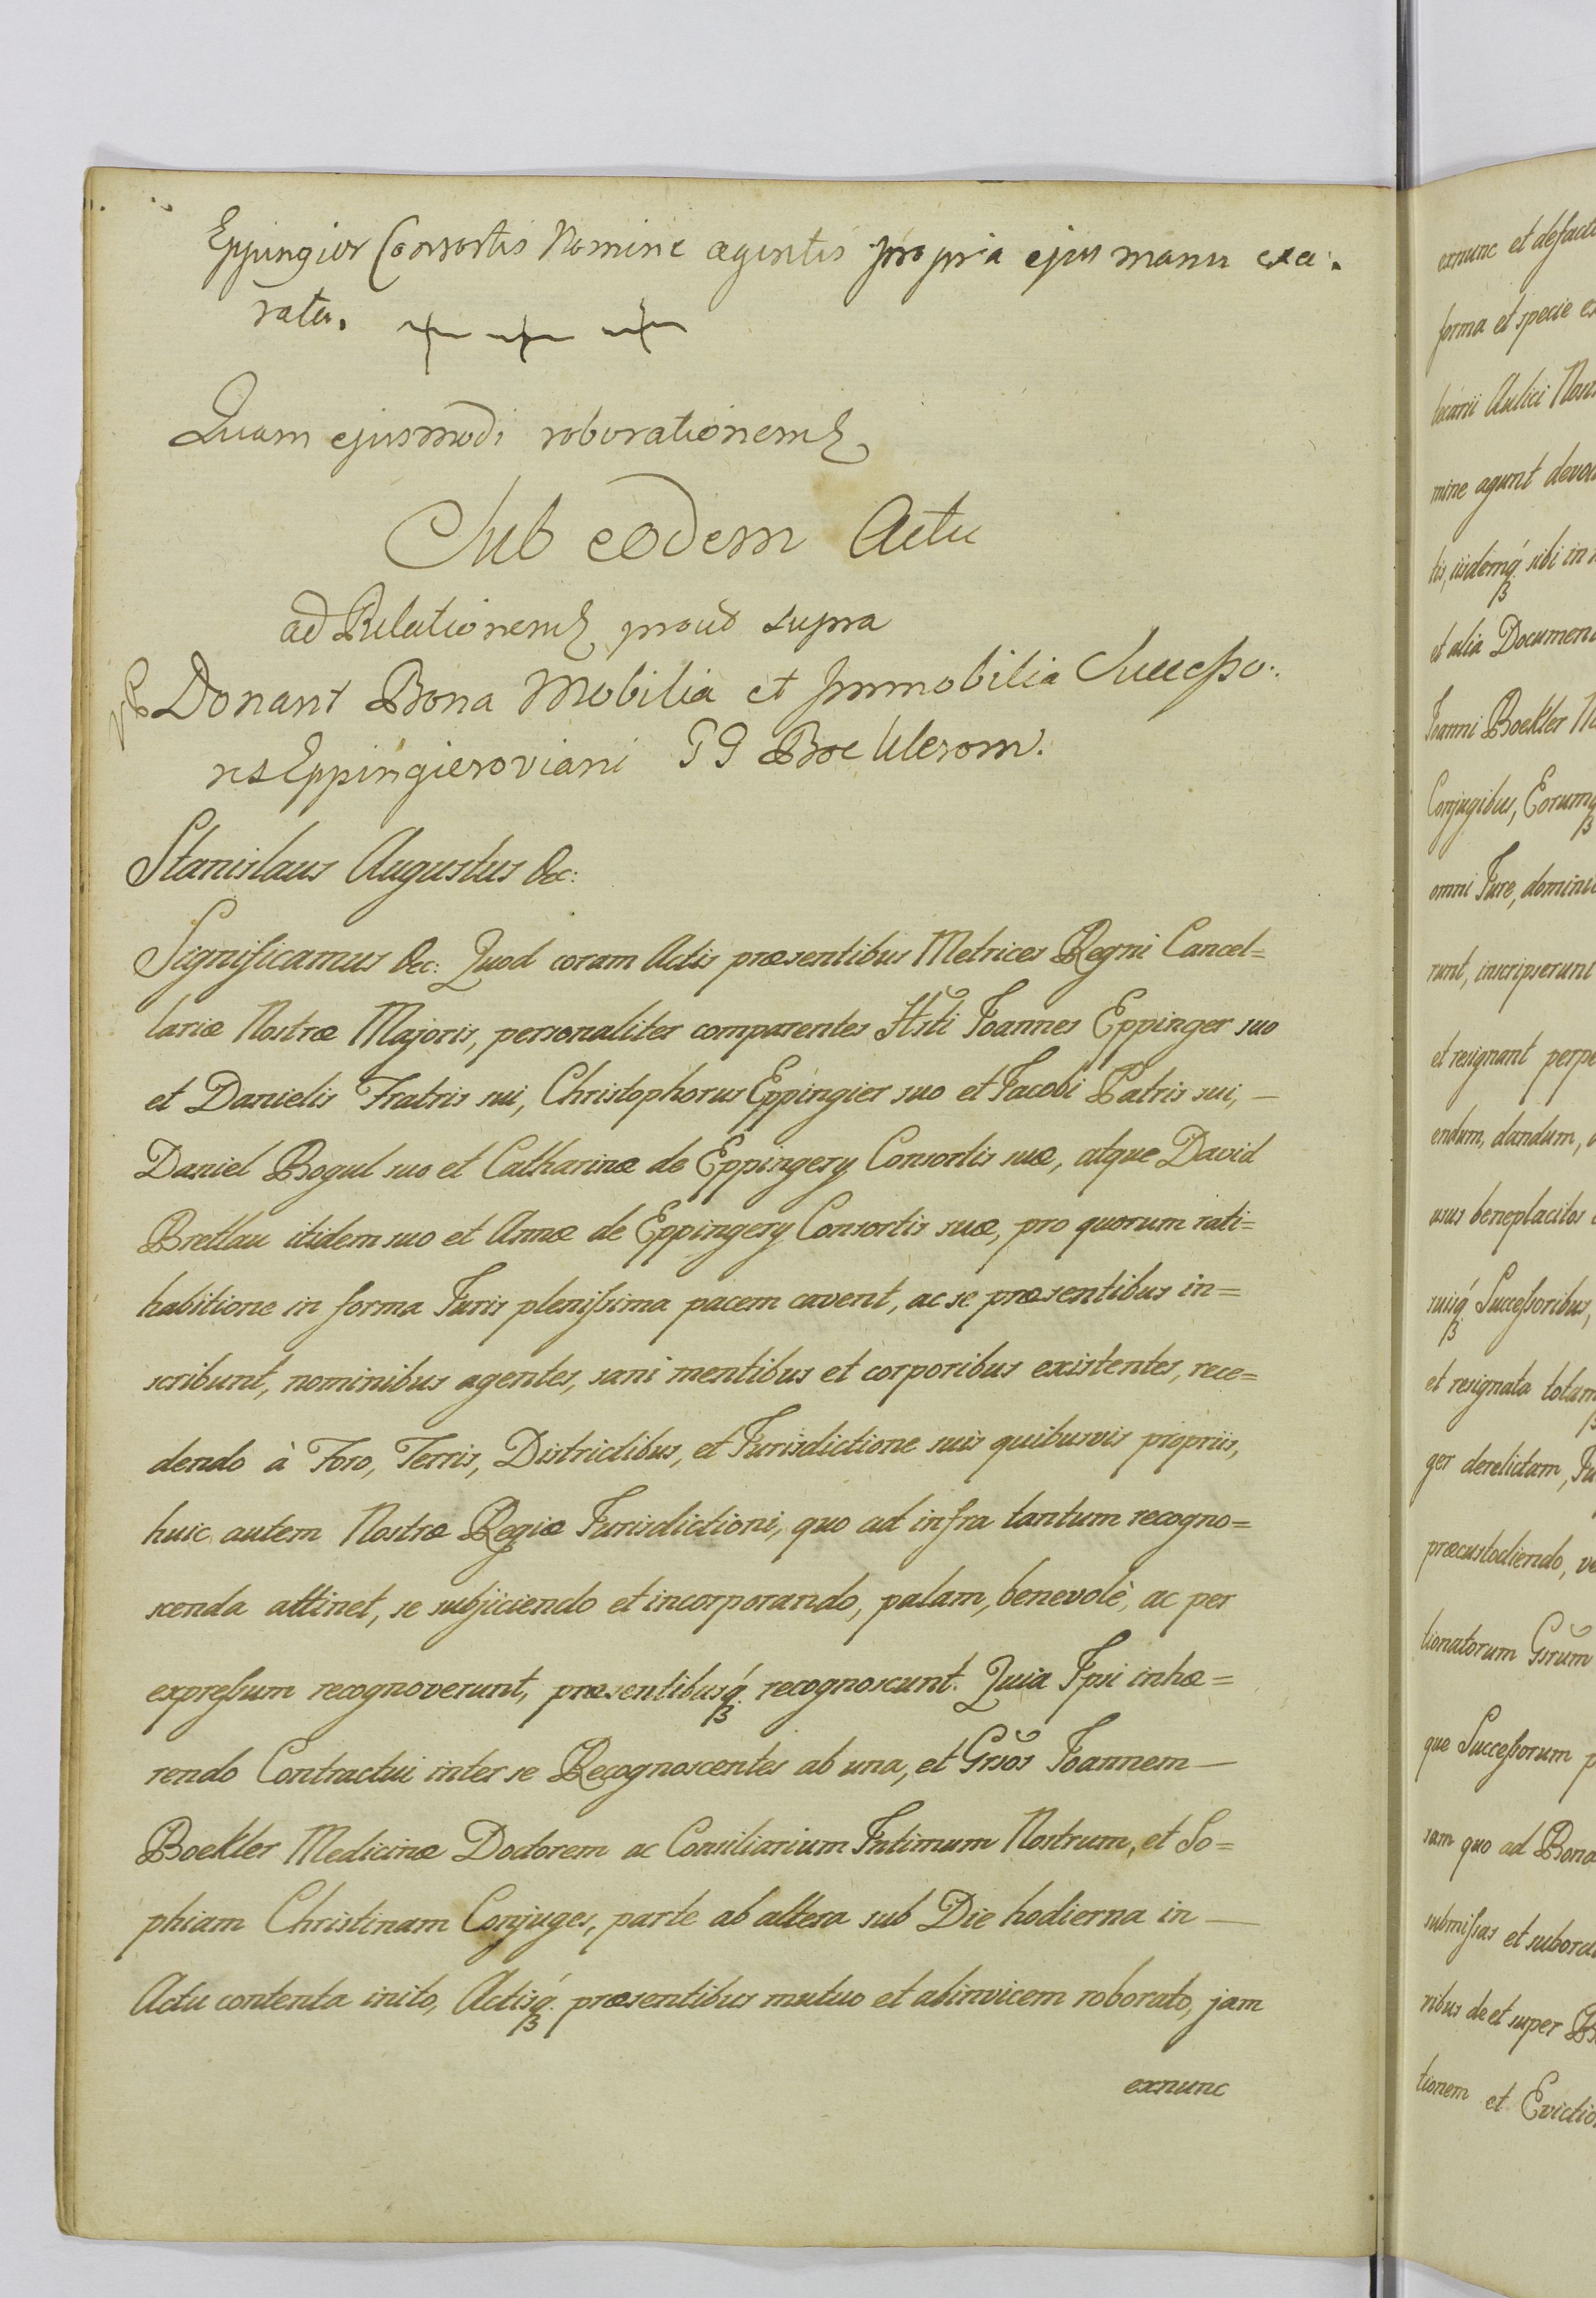 Eppingier Consortis Nomine agentis propria ejus manu exa-
rata.
Quam ejusmodi roborationem &
Sub eodem Actu
ad Relationem & prout supra
Donant Bona Mobilia et Immobilia Successo-
res Eppingieroviani GG Boeklerom.
Stanislaus Augustus &c:
Significamus &c: Quod coram Actis præsentibus Metrices Regni Cancel=
lariæ Nostræ Majoris, personaliter comparentes Hsti Joannes Eppinger suo
et Danielis Fratris sui, Christophorus Eppingier suo et Jacobi Patris sui, —
Daniel Bogul suo et Catharinæ de Eppingery Consortis suæ, atque David
Bretlau itidem suo et Annæ de Eppingery Consortis suæ, pro quorum rati=
habitione in forma Juris plenissima pacem cavent, ac se præsentibus in=
scribunt, nominibus agentes, sani mentibus et corporibus existentes, rece=
dendo à Foro, Terris, Districtibus, et Jurisdictione suis quibusvis propriis,
huic autem Nostræ Regiæ Jurisdictioni, quo ad infra tantum recogno=
scenda attinet, se subjiciendo et incorporando, palam, benevolè, ac per
expressum recognoverunt, præsentibusq́ꝫ recognoscunt. Quia Ipsi inhæ=
rendo Contractui inter se Recognoscentes ab una, et Grsos Joannem —
Boekler Medicinæ Doctorem ac Consiliarium Intimum Nostrum, et So=
phiam Christinam Conjuges, parte ab altera sub Die hodierna in —
Actu contenta inito, Actisq́ꝫ præsentibus mutuo et abinvicem roborato, jam
exnunc
exnunc et defacto
forma et specie
Aulici
mine agunt
tis, iisdemq́ꝫ sibi in
et alia
Joanni Boekler
Conjugibus,
omni Jure,
runt, inscripserunt
et resignant
endum, dandum,
usus beneplacitos
suisq́ꝫ Successoribus,
et resignata
ger derelictam,
præcustodiendo,
tionatorum Grsum
que Successorum
sam quo ad Bona
submissas et
ribus de et super
tionem et